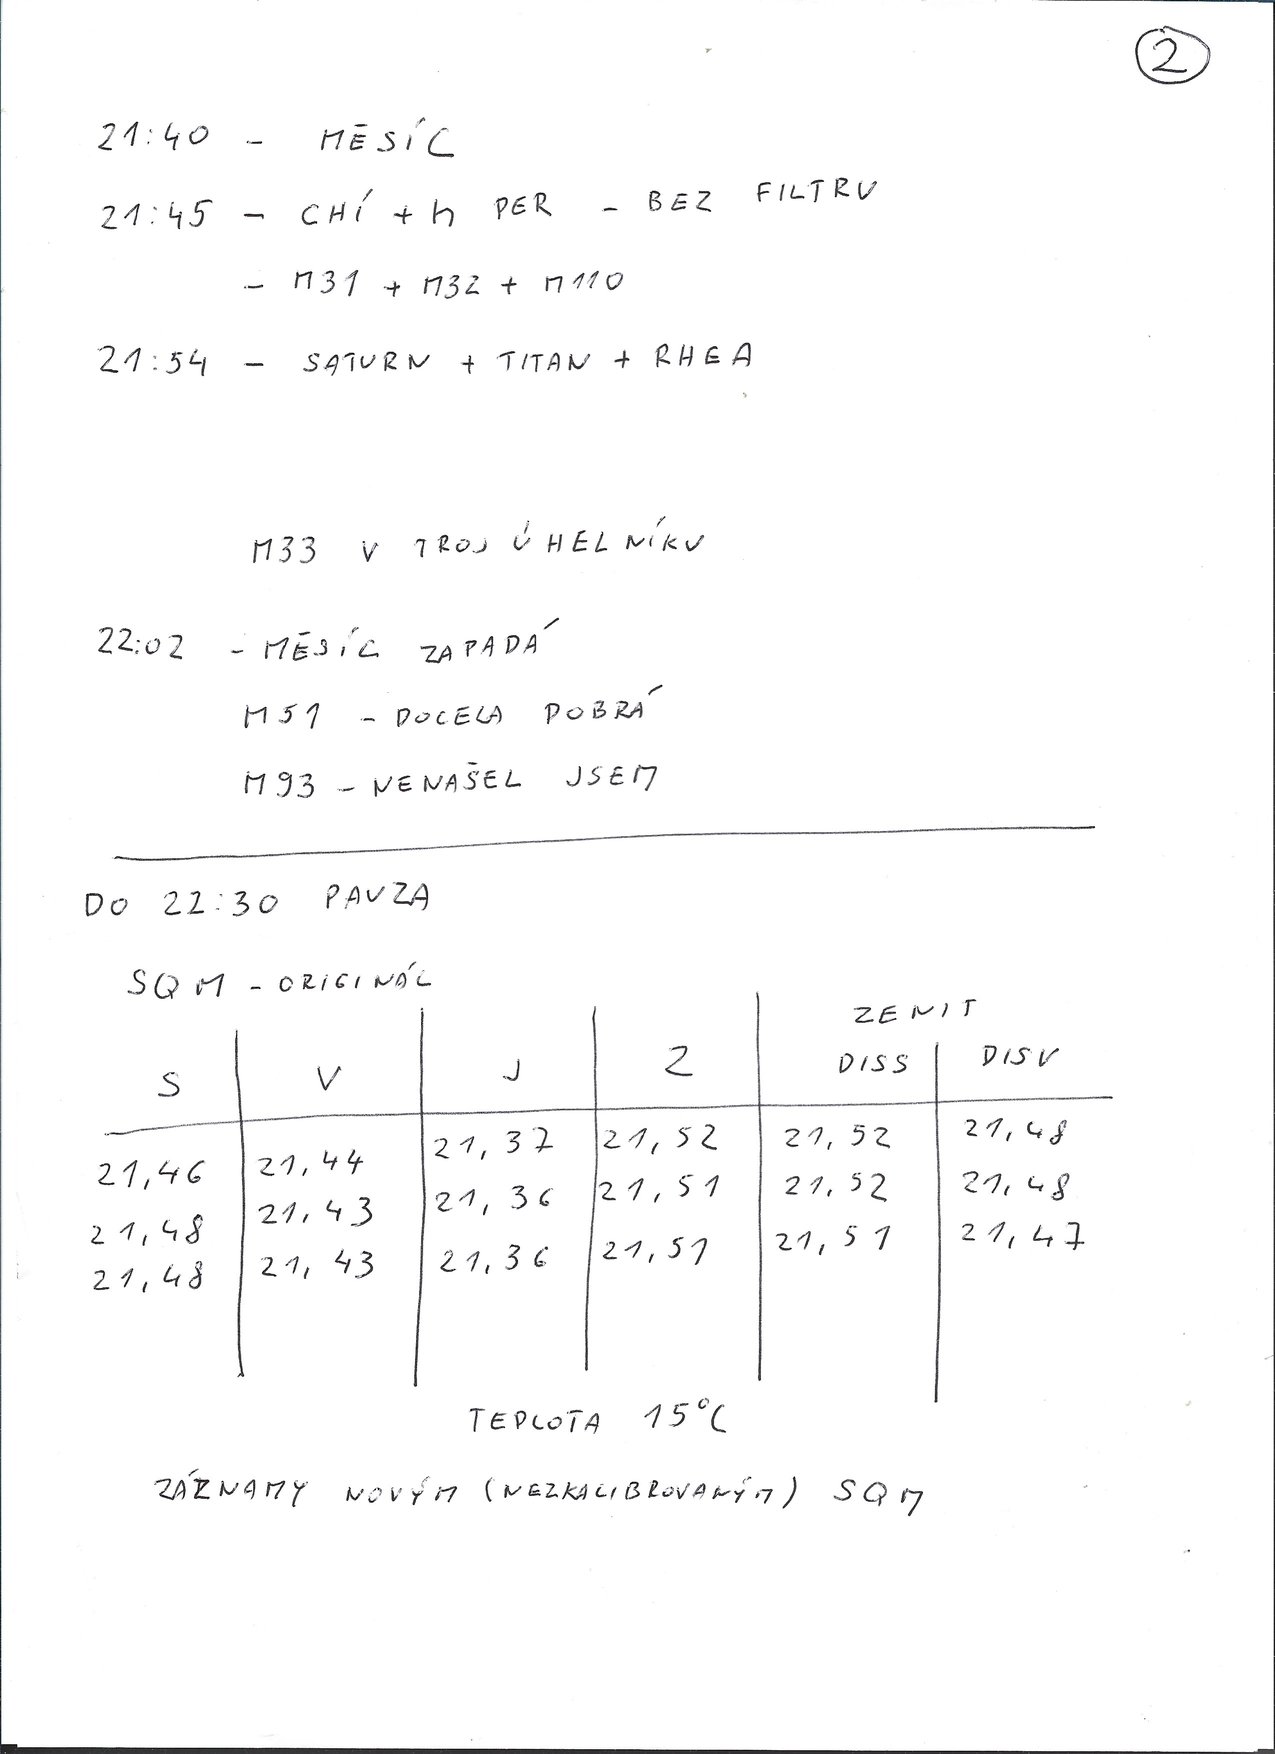 2
21:40 - MĚSÍC
21:45 - CHÍ + h PER - BEZ FILTRU
- M31 + M32 + M110
21:54 - SATURN + TITAN + RHEA
M33 V TROJÚHELNÍKU
22:02 - MĚSÍC ZAPADÁ
M51 - DOCELA DOBRÁ
M93 - NENAŠEL JSEM
DO 22:30 PAUZA
SQM - ORIGINÁL
ZENIT
S V J Z DISS DISV
21,46 21,44 21,37 21,52 21,52 21,48
21,48 21,43 21,36 21,51 21,52 21,48
21,48 21,43 21,36 21,51 21,51 21,47
TEPLOTA 15°C
ZÁZNAMY NOVÝM (NEZKALIBROVANÝM) SQM